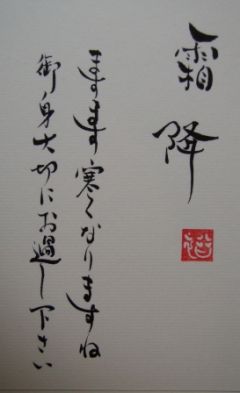 霜降
ますます寒くなりますね
御身大切にお過し下さい